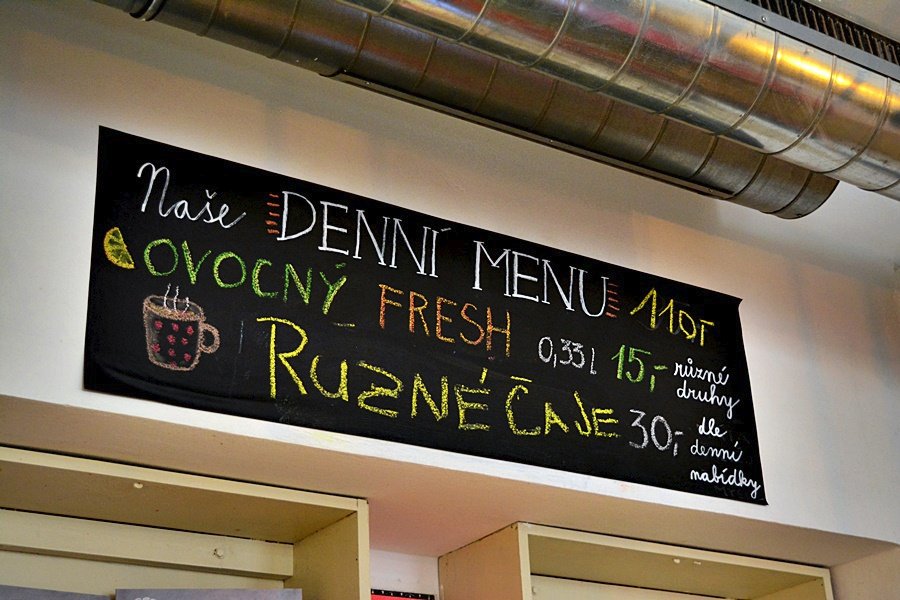 Naše DENNÍ MENU 110,-
OVOCNÝ FRESH 0,33 l 15,- různé
druhy
RŮZNÉ ČAJE 30,- dle
denní
nabídky